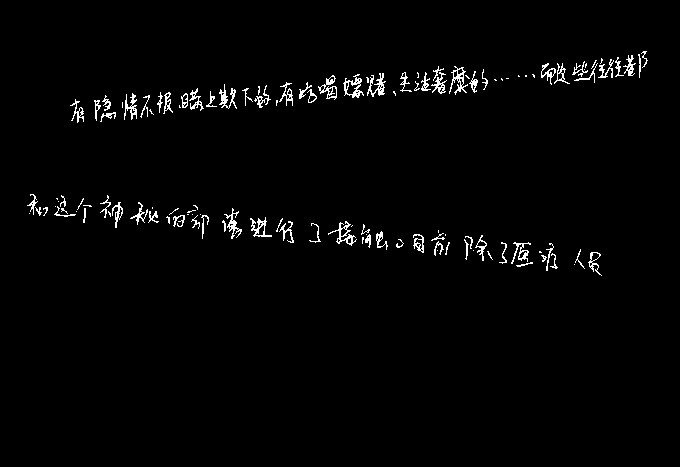 有隐情不报瞒上欺下的,有吃喝嫖赌、生活奢靡的……而这些往往都
和这个神秘的部落进行了接触。目前除了医疗人员